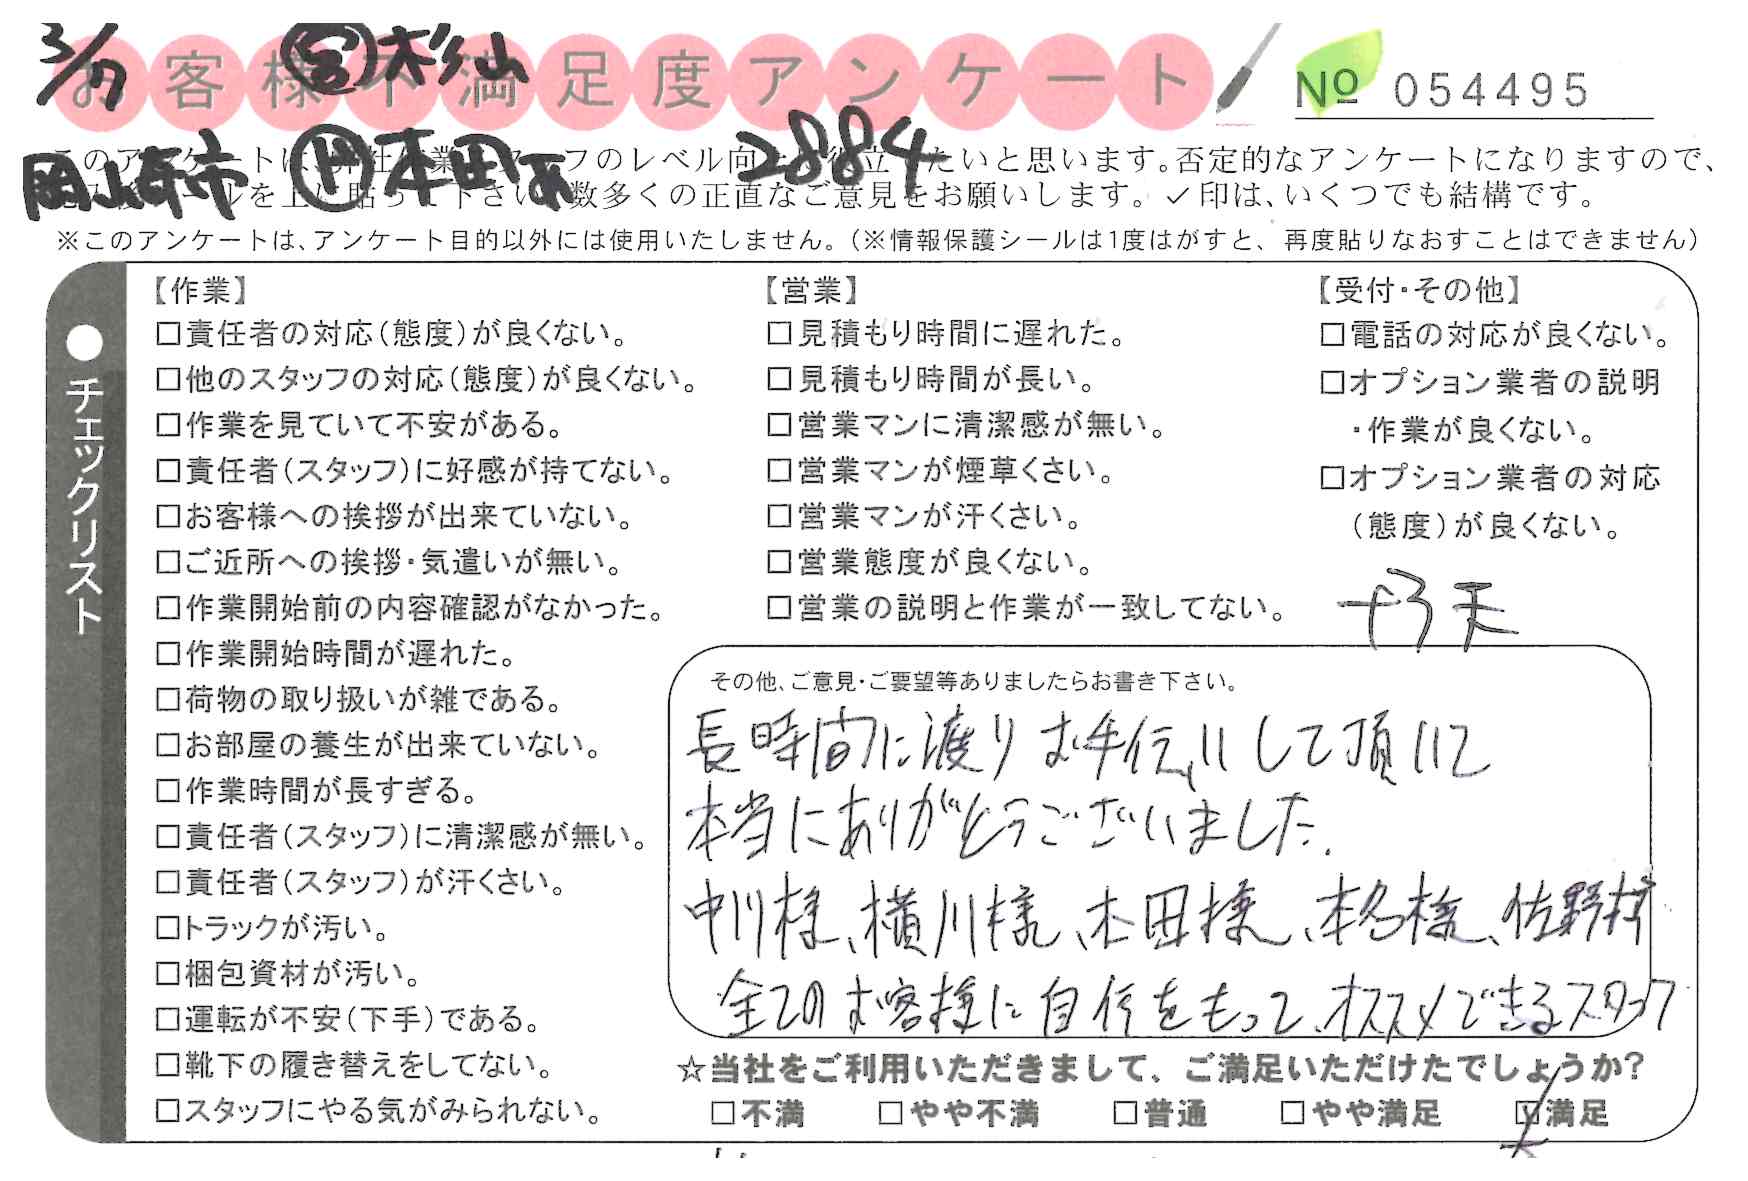 3/17 営 杉山
お客様不満足度アンケート
№ 054495
岡崎市 作 本田あ 2884
このアンケートは、弊社作業スタッフのレベル向上に役立てたいと思います。否定的なアンケートになりますので、
シールを上に貼って下さい。数多くの正直なご意見をお願いします。✓印は、いくつでも結構です。
※このアンケートは、アンケート目的以外には使用いたしません。（※情報保護シールは1度はがすと、再度貼りなおすことはできません）
●チェックリスト
【作業】
□責任者の対応（態度）が良くない。
□他のスタッフの対応（態度）が良くない。
□作業を見ていて不安がある。
□責任者（スタッフ）に好感が持てない。
□お客様への挨拶が出来ていない。
□ご近所への挨拶・気遣いが無い。
□作業開始前の内容確認がなかった。
□作業開始時間が遅れた。
□荷物の取り扱いが雑である。
□お部屋の養生が出来ていない。
□作業時間が長すぎる。
□責任者（スタッフ）に清潔感が無い。
□責任者（スタッフ）が汗くさい。
□トラックが汚い。
□梱包資材が汚い。
□運転が不安（下手）である。
□靴下の履き替えをしてない。
□スタッフにやる気がみられない。
【営業】
□見積もり時間に遅れた。
□見積もり時間が長い。
□営業マンに清潔感が無い。
□営業マンが煙草くさい。
□営業マンが汗くさい。
□営業態度が良くない。
□営業の説明と作業が一致してない。
【受付・その他】
□電話の対応が良くない。
□オプション業者の説明
・作業が良くない。
□オプション業者の対応
（態度）が良くない。
その他、ご意見・ご要望等ありましたらお書き下さい。
長時間に渡りお手伝いして頂いて
本当にありがとうございました.
中川様、横川様、本田様、本名様、佐野様
全てのお客様に自信をもって、オススメできるスタッフ
☆当社をご利用いただきまして、ご満足いただけたでしょうか?
□不満 □やや不満 □普通 □やや満足 ☑満足